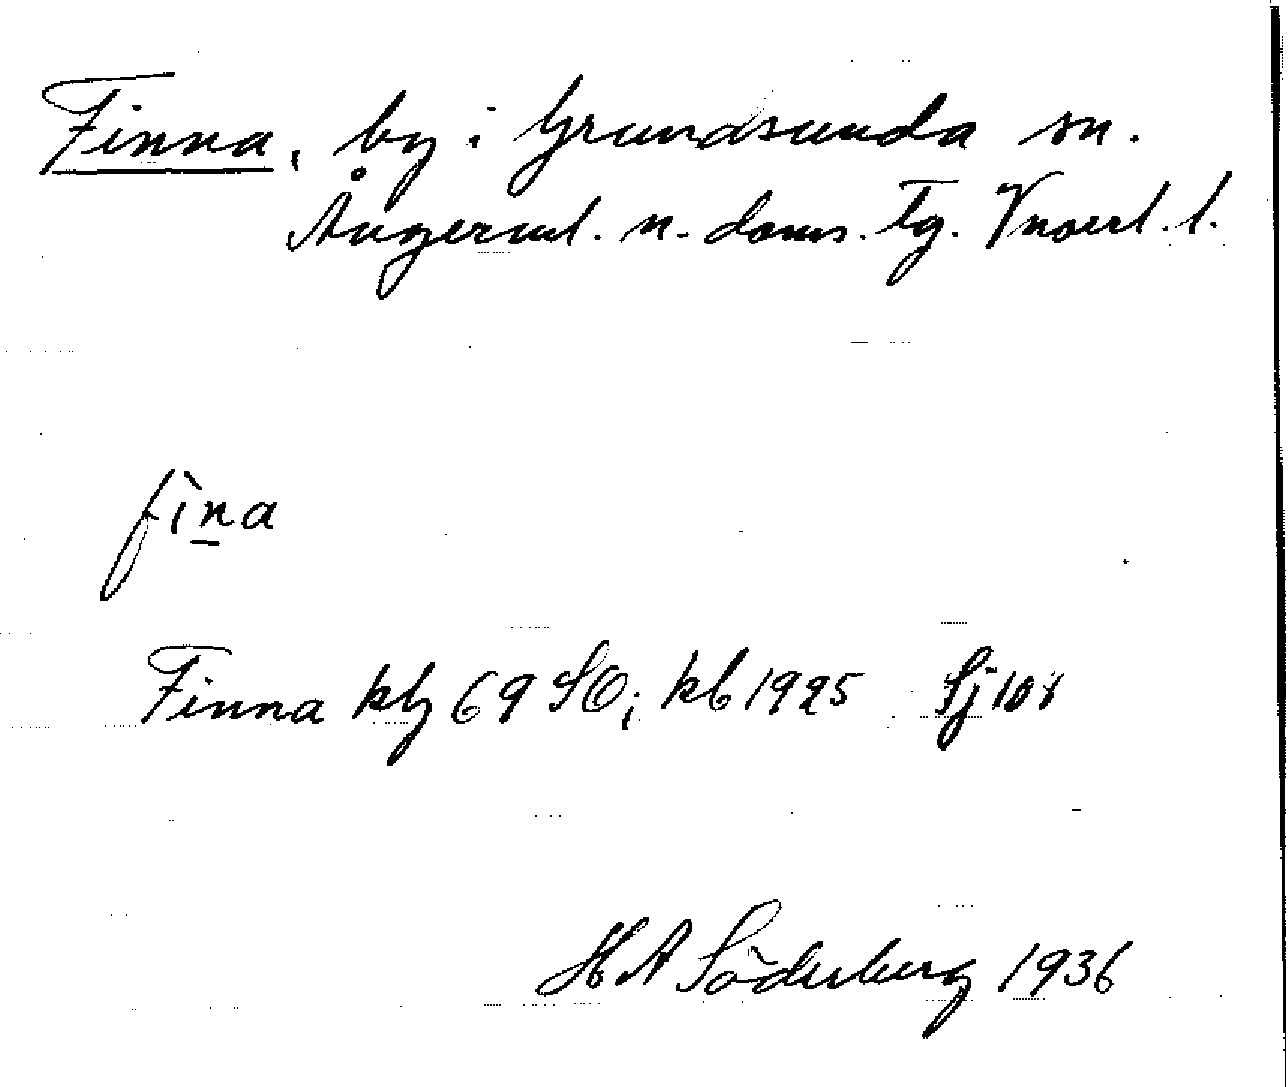 Finna, by i Grundsunda sn.
Ångerml. n. doms. Tg. Vnorrl. l.
fìn̲a
Finna kbg 69 SO; kb 1925 Sj 108
H A Söderberg 1936